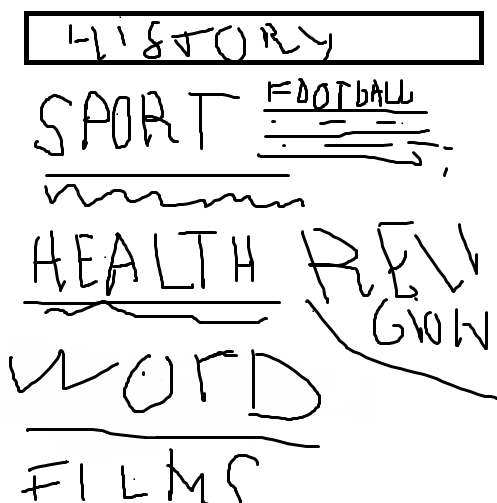 HISTORY
SPORT
FOOTBALL
HEALTH
WORD
FILMS